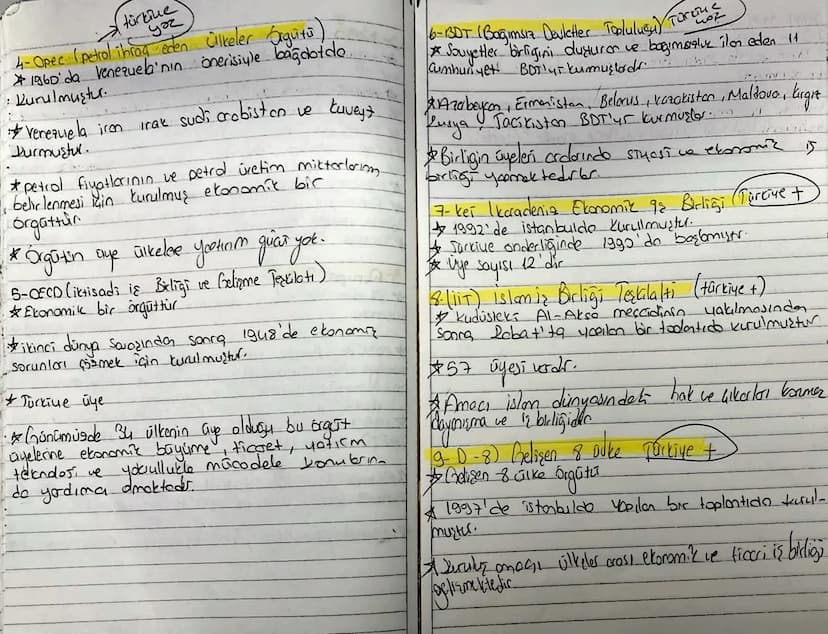 Türkiye
yok
4-Opec (petrol ihraç eden Ülkeler Örgütü)
* 1960'da Venezuela'nın önerisiyle bağdatda
kurulmuştur.
* Venezuela iran ırak sudi arabistan ve kuveyt
kurmuştur.
* petrol fiyatlarının ve petrol üretim miktarlarının
belirlenmesi için kurulmuş ekonomik bir
örgüttür
* Örgütün üye ülkelere yaptırım gücü yok.
5-OECD (iktisadi iş Birliği ve Gelişme Teşkilatı)
* Ekonomik bir örgüttür
* ikinci dünya savaşından sonra 1948'de ekonomik
sorunları çözmek için kurulmuştur.
* Türkiye üye
* Günümüzde 34 ülkenin üye olduğu bu örgüt
üyelerine ekonomik büyüme, ticaret, yatırım
teknoloji ve yoksullukla mücadele konuların-
da yardımcı olmaktadır.
6-BDT (Bağımsız Devletler Topluluğu) Türkiye
yok
* Sovyetler birliğini oluşturan ve bağımsızlık ilan eden 11
Cumhuriyet BDT'yi kurmuşlardır.
* Azarbeycan, Ermenistan, Belarus, kazakistan, Maldova, kırgız
Rusya, Tacikistan BDT'yi kurmuşlar.
* Birliğin üyeleri aralarında siyasi ve ekonomik iş
birliği yapmaktadırlar
7-kei (karadeniz Ekonomik iş Birliği) Türkiye +
* 1992'de istanbulda kurulmuştur.
* Türkiye önderliğinde 1990'da başlamıştır.
* Üye sayısı 12'dir
8-(iiT) islam iş Birliği Teşkilatı (türkiye +)
* kudüsteki Al-Aksa mescidinin yakılmasından
sonra Rabat'ta yapılan bir toplantıda kurulmuştur
* 57 üyesi vardır.
* Amacı islam dünyasındaki hak ve çıkarları korumaz
dayanışma ve iş birliğidir
9-D-8) Gelişen 8 ülke Türkiye +
* Gelişen 8 ülke örgütü
* 1997'de istanbulda yapılan bir toplantıda kurul-
muştur.
* Kuruluş amacı ülkeler arası ekonomik ve ticari iş birliği
gelişmektedir